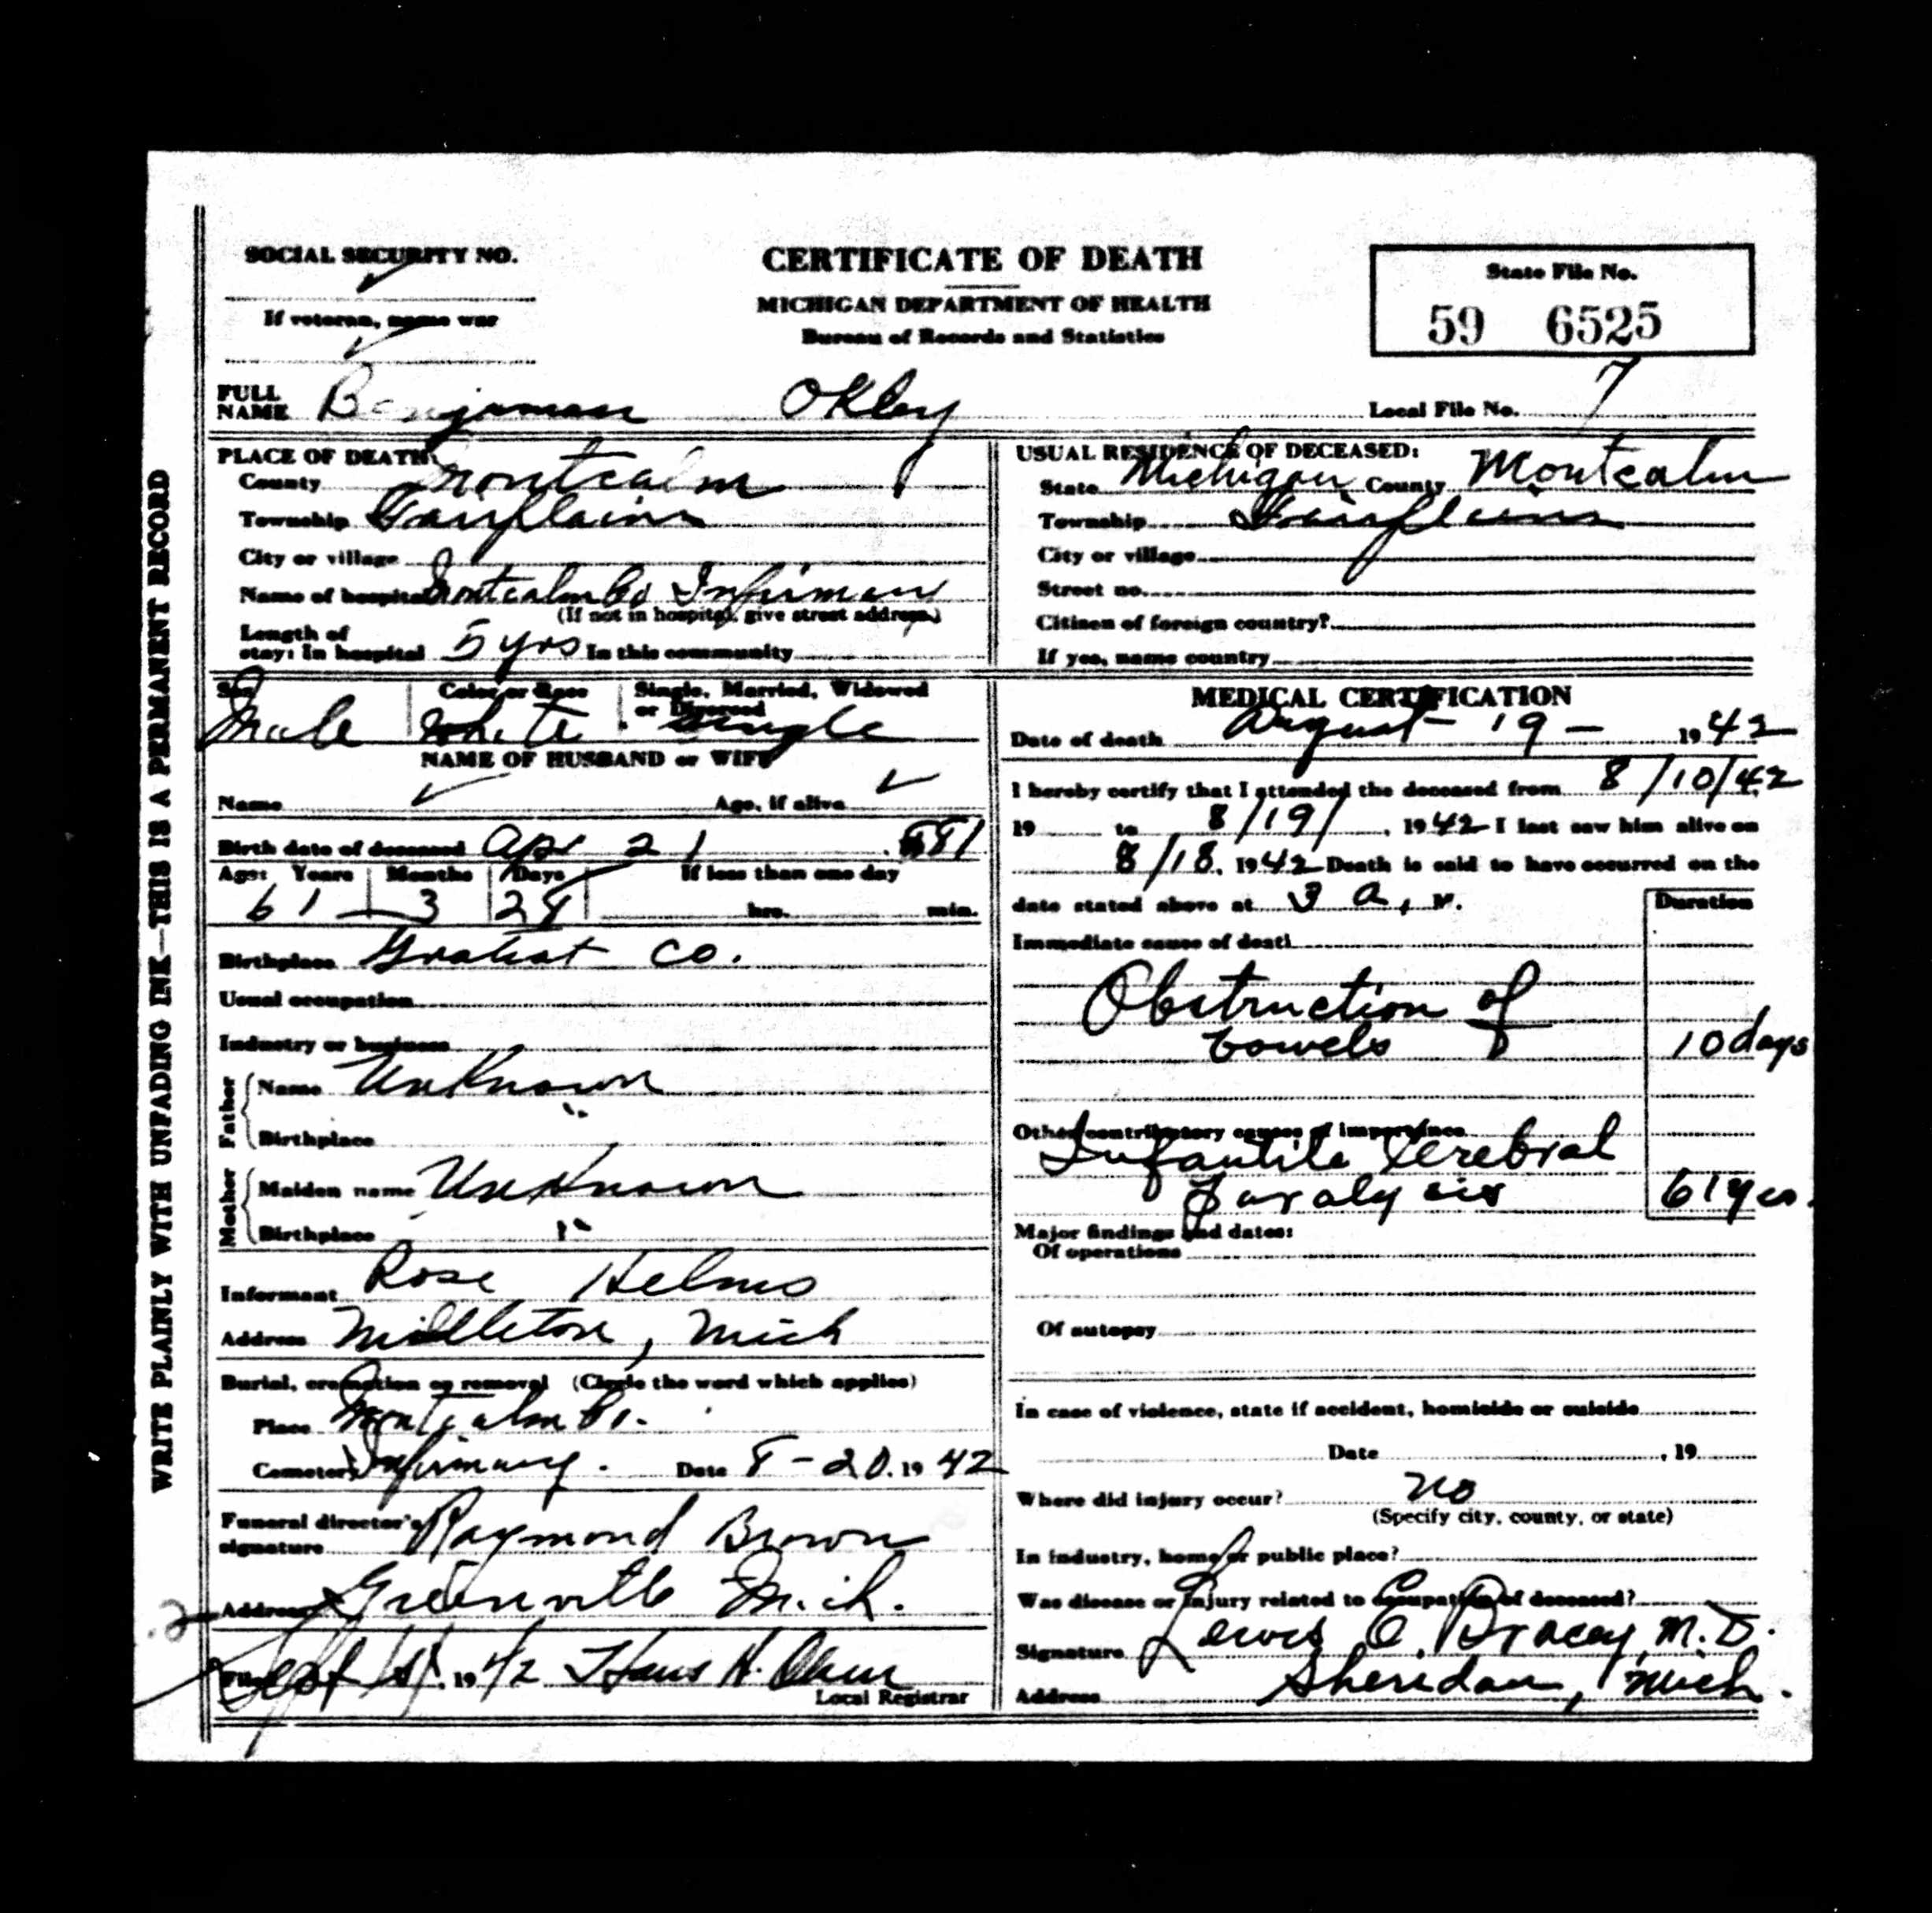 SOCIAL SECURITY NO.
If veteran, name war
CERTIFICATE OF DEATH
MICHIGAN DEPARTMENT OF HEALTH
Bureau of Records and Statistics
State File No.
59 6525
FULL NAME Benjaman Okley
Local File No. 7
PLACE OF DEATH:
County Montcalm
Township Fairplains
City or village
Name of hospital Montcalm Co Infirmary
(If not in hospital, give street address.)
Length of stay: In hospital 5 yrs In this community
USUAL RESIDENCE OF DECEASED:
State Michigan County Montcalm
Township Fairplains
City or village
Street no.
Citizen of foreign country?
If yes, name country
Sex Male
Color or Race White
Single, Married, Widowed or Divorced Single
NAME OF HUSBAND or WIFE
Name Age, if alive
Birth date of deceased Apr 21 1881
Age: Years Months Days If less than one day
61 3 28 hrs. min.
Birthplace Gratiot Co.
Usual occupation
Industry or business
Father
Name Unknown
Birthplace "
Mother
Maiden name Unknown
Birthplace "
Informant Rose Helms
Address Middleton, Mich
Burial, cremation or removal (Circle the word which applies)
Place Montcalm Co.
Cemetery Infirmary. Date 8-20. 1942
Funeral director's signature Raymond Brown
Address Greenville Mich.
Filed Sept 1st, 1942 Hans H. Olsen
Local Registrar
MEDICAL CERTIFICATION
Date of death August 19 - 1942
I hereby certify that I attended the deceased from 8/10/42
19 to 8/19/, 1942 I last saw him alive on
8/18, 1942 Death is said to have occurred on the
date stated above at 3 a, M.
Duration
Immediate cause of death
Obstruction of
bowels 10 days
Other contributory causes of importance
Infantile Cerebral
Paralysis 61 yrs.
Major findings and dates:
Of operations
Of autopsy
In case of violence, state if accident, homicide or suicide
Date , 19
Where did injury occur? no
(Specify city, county, or state)
In industry, home or public place?
Was disease or injury related to occupation of deceased?
Signature Lewis E. Bracey, M.D.
Address Sheridan, Mich.
WRITE PLAINLY WITH UNFADING INK—THIS IS A PERMANENT RECORD